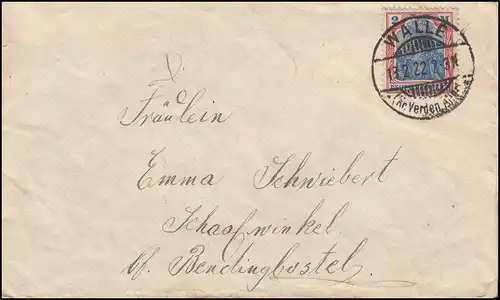 2 M
WALLE
13.2.22 2-3N
(Kr Verden, Aller)
Fräulein
Emma Schwiebert
Schaafwinkel.
bf. Bendingbostel,